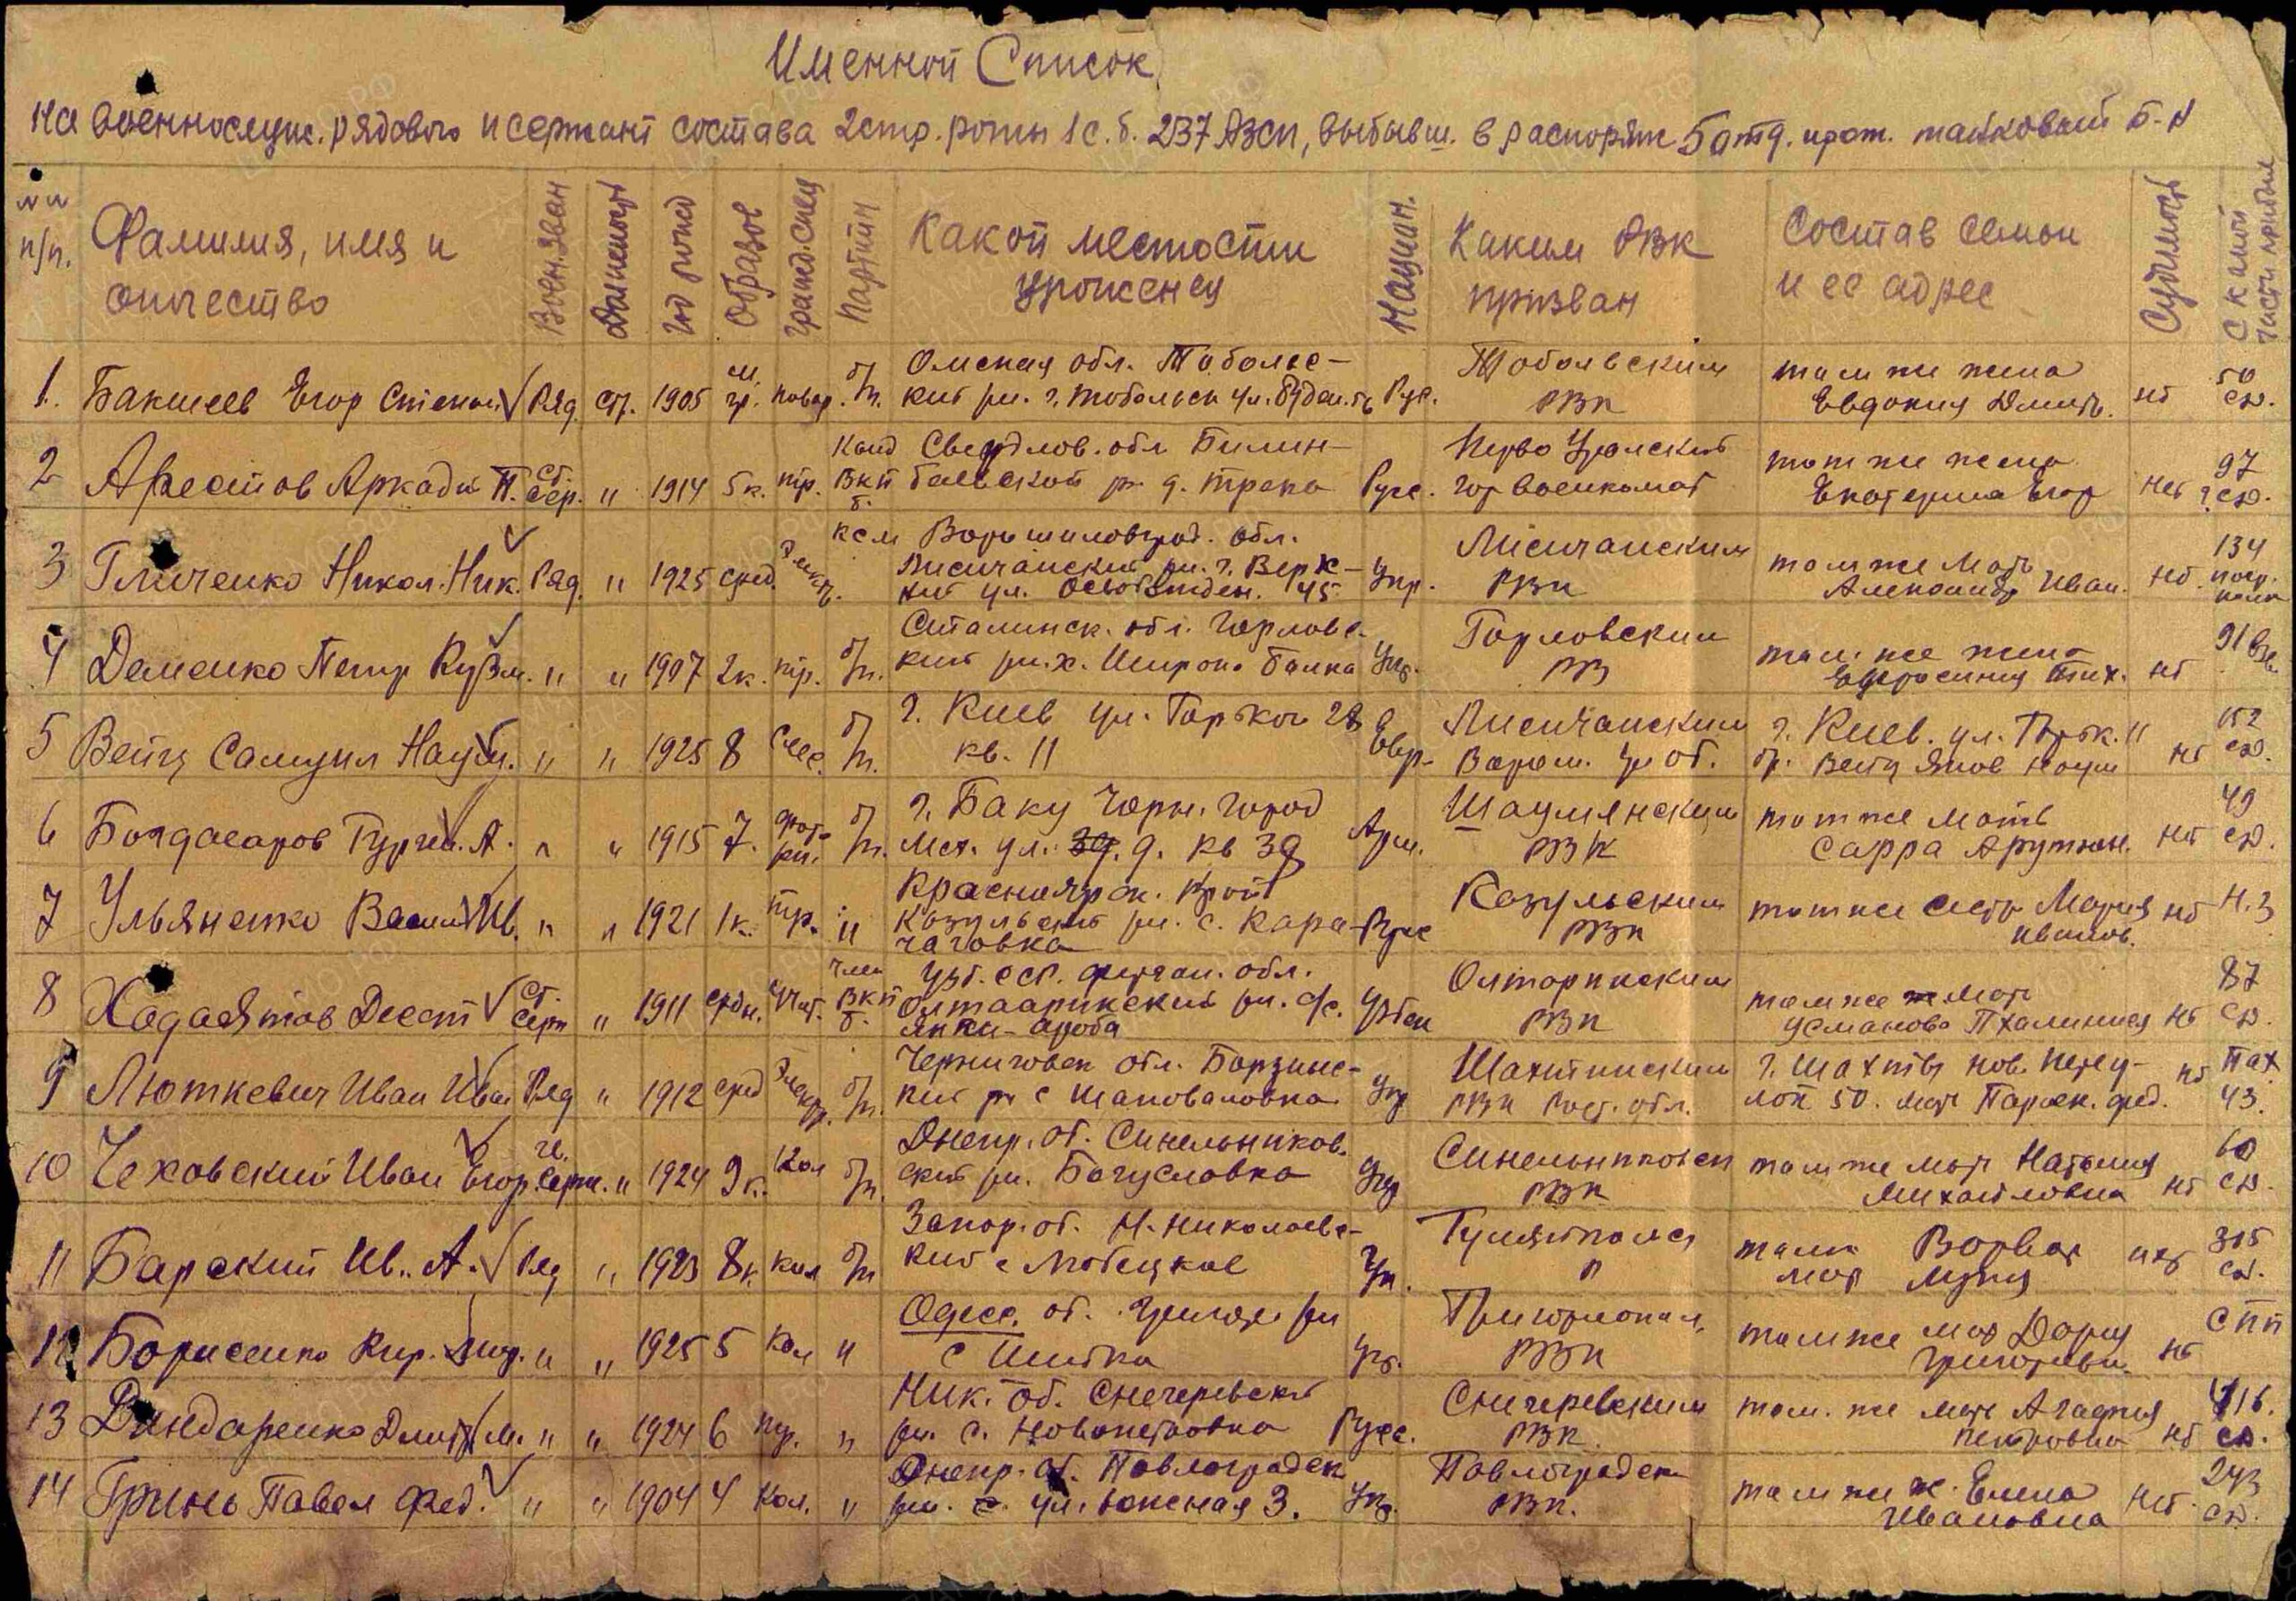 Именной Список
на военнослуж. рядового и сержант состава 2 стр. роты 1 с.б. 237 АЗСП, выбывш. в распоряж 5 отд. прот. танковый б-н
№№ п/п.
Фамилия, имя и отчество
Воен. зван
Должность
год рожд
Образов
гражд. спец
Партийн
Какой местности уроженец
Национ.
Каким РВК призван
Состав семьи и ее адрес
Судимость
С какой части прибыл
1. Бакшеев Егор Степан. Ряд. стр. 1905 м. гр. повар. б/п. Омская обл. Тобольс-
кий рн. г. Тобольск ул. Рус. Тобольским РВК там же жена Евдокия Дмит. нет 50 сд.
2 Арестов Аркади П. Ст. сер. " 1914 5 к. тр. Канд ВКП б. Свердлов. обл Билим-
баевской р. д. Трека Русс. Перво Уральский гор военкомат там же жена Екатерина Егор нет 97 г. сд.
3 Никол. Ник. Ряд. " 1925 сред. ксм Ворошиловград. обл.
Лисичанский рн. г. Верх-
ний ул. 45 Укр. Лисичанским РВК там же мать Александр Иван. нет 134 полк
4 Деменко Петр Кузьм. " " 1907 2 к. тр. б/п. Сталинск. обл. Горловс-
кий рн. х. Широка Балка Укр. Горловским РВ там же жена Ефросиния Тих. нет 91
5 Вейц Самуил Наум. " " 1925 8 б/п. г. Киев ул. Горьког 28
кв. 11 Евр. Лисичанским Ворош. гр об. г. Киев. ул. Горьк. 11 бр. Вейц Яков Наум нет 152 сд.
6 Богдасаров Гурген. А. " " 1915 7. б/п. г. Баку Черн. город
ул. д. кв 39 Арм. Шаумянским РВК там же мать Сарра Арутюн. нет 49 сд.
7 Ульяненко Васил Ив. " " 1921 1 к. тр. " Красноярск. край
Козульский рн. с. Кара-
чаговка Русс Козульским РВК там же сестр Мария Иванов. нет Н.З
8 Хадаятов Дест Ст. серж " 1911 средн. учит. Член ВКП б. Узб. ССР. Ферган. обл.
Олтаарикский рн. с/с.
Янки-ароба Узбек Олтарикским РВК там же мать Усманова нет 87 сд.
9 Люткевич Иван Иван Ряд " 1912 сред б/п. Черниговск обл. Борзинс-
кий р с Шаповаловка Укр Шахтинским РВК Рост. обл. г. Шахты нов. Пересе-
лоп 50. мать Параск. фед. нет 43.
10 Чеховский Иван Егор. серж. " 1924 9 к. Кол б/п. Днепр. об. Синельников.
ский рн. Богуславка Укр Синельниковск РВК там же мать Наталия Михайловна нет 60 сд.
11 Барский Ив. А. Ряд " 1923 8 к кол б/п Запор. об. Н. Николаевс-
кий с Любецкое Ук. Гуляйпольск Р там мать Варвар нет 315 сд.
12 Борисенко Кир. " " 1925 5 кол " Одесс. об. рн
с Шибка Укр. Григориопол. РВК там же мать Дарья Григорьевн. нет СПП
13 Бондаренко Дмитр М. " " 1924 6 " Ник. об. Снегиревский
рн. с. Новопетровка Русс. Снигиревским РВК там. же мать Агафия Петровна нет 416. сд.
14 Гринь Павел Фед. " " 1904 4 кол. " Днепр. об. Павлоградск
рн. с. ул. Южная 3. Укр. Павлоградск РВК. там же ж. Елена Ивановна нет. 243 сд.